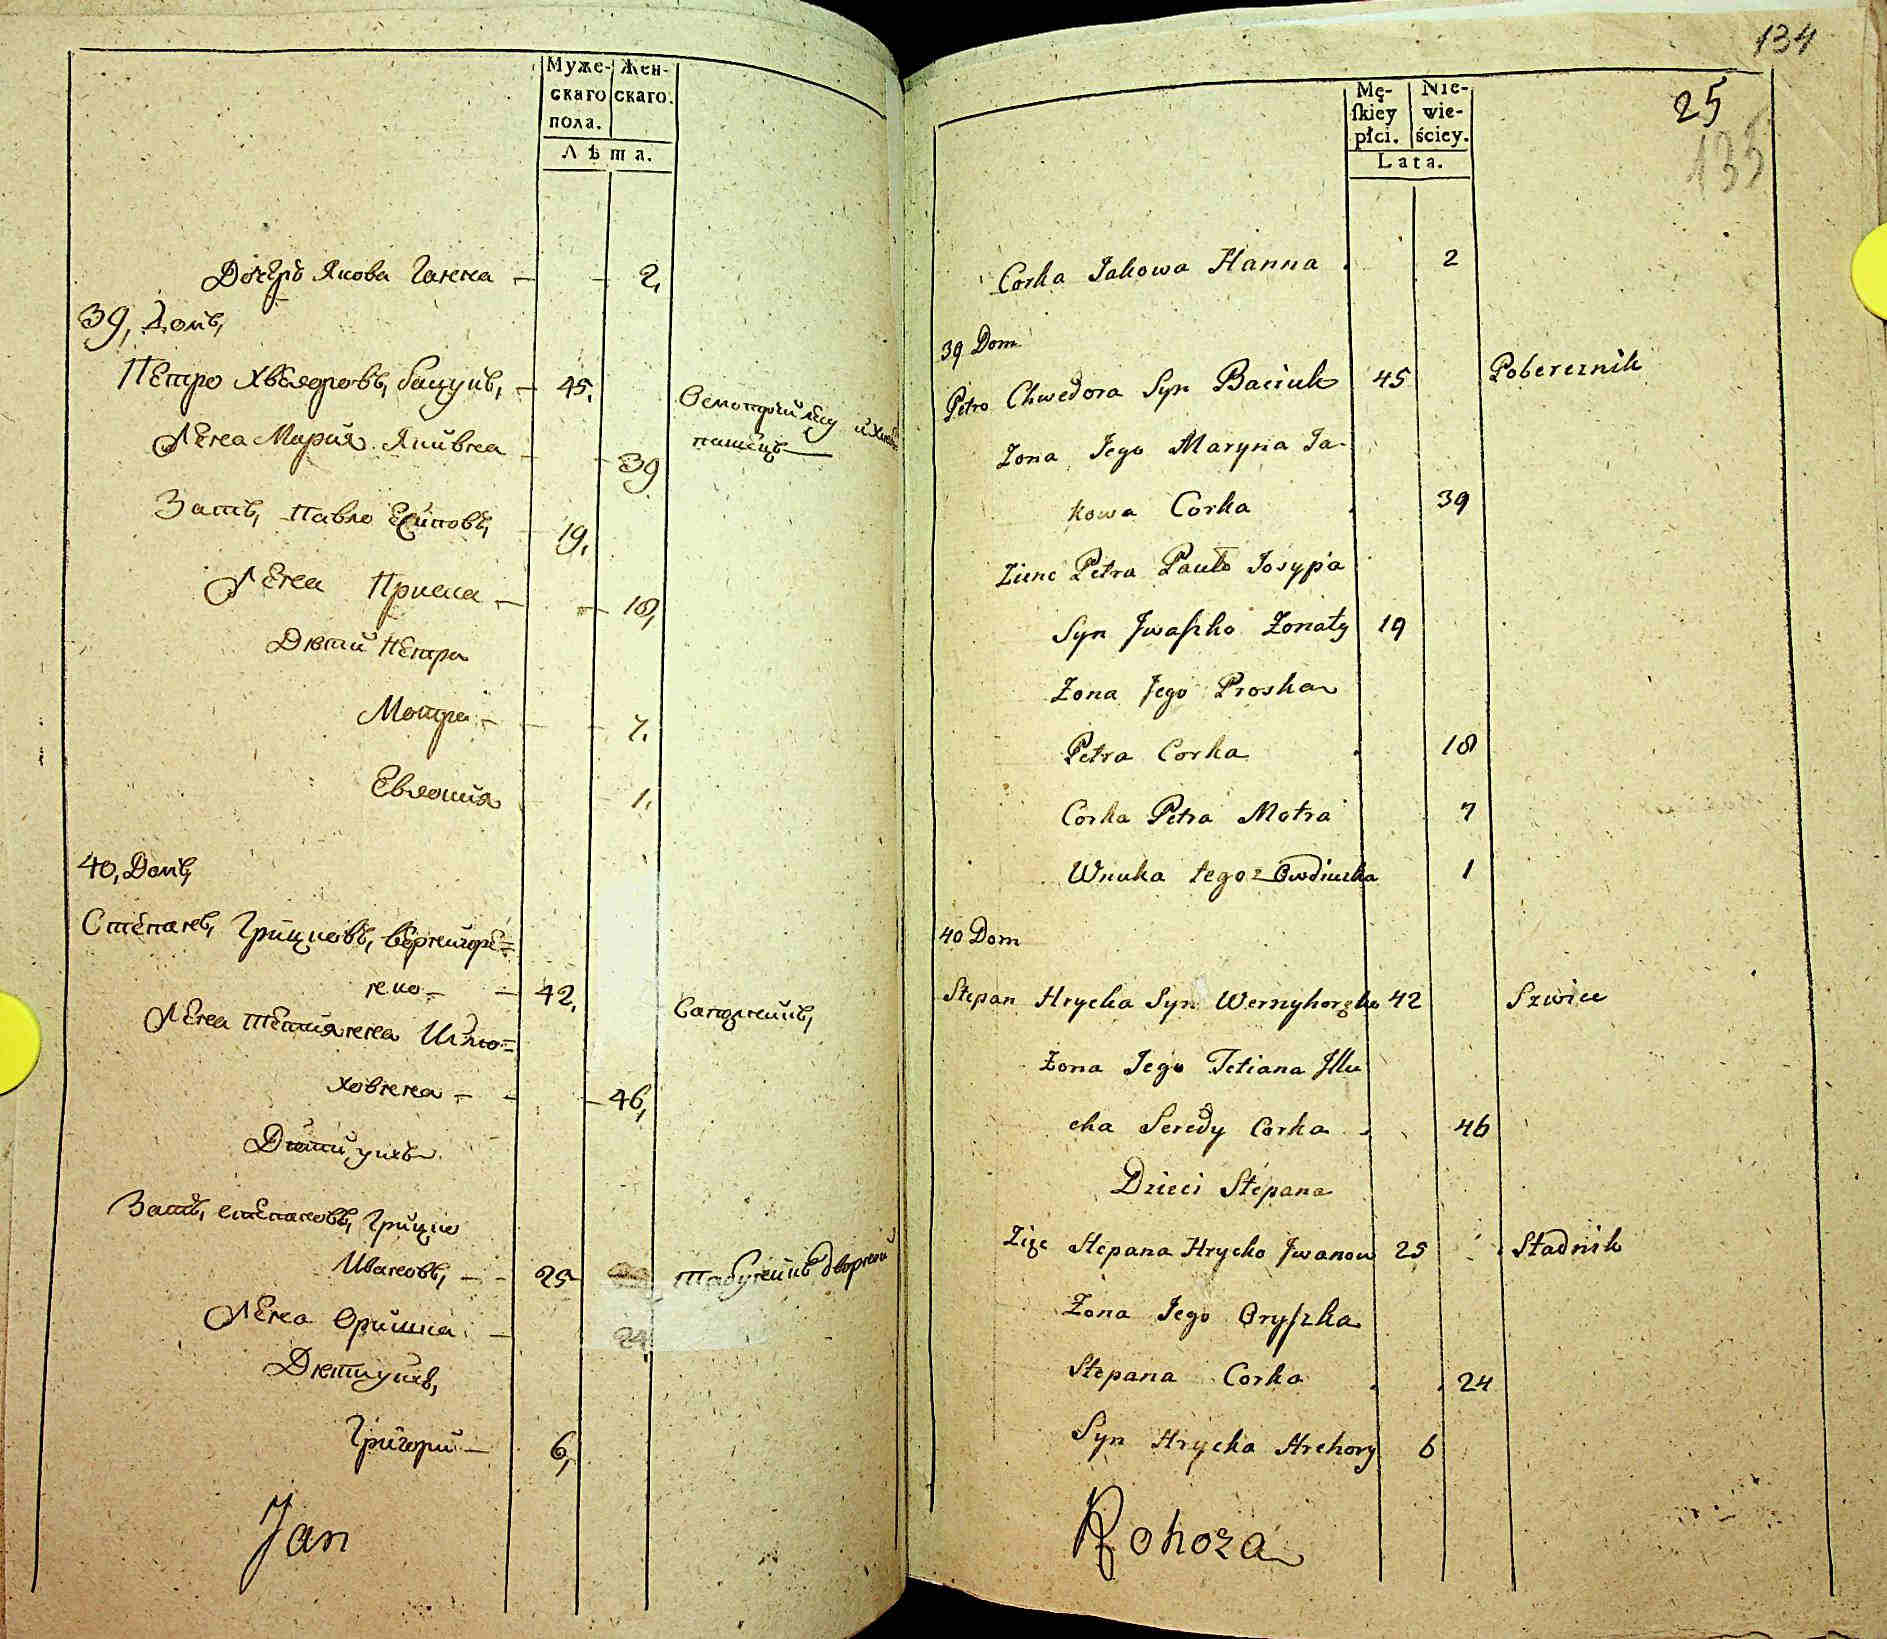 Муже-
скаго
пола.
Жен-
скаго.
Лѣта.
Дочеръ Якова Ганна 2,
39, Домъ,
Петро Хведоровъ, бацукъ, 45,
Жена Мария Яківна 39
Зать, Павло Есиповъ, 19,
Жена Приска 18,
Дѣти Петра
Мотря 7.
Евдокия 1,
40, Домъ,
Степанъ, Грицковъ, вернигоре=
нко 42, Сапожникъ,
Жена Тетиянна
ховнна 46,
Дѣти ихъ
Зать, степановъ, Грицко
Ивановъ, 25 Табунникъ дворный
Жена Оришка 24
Дѣти ихъ,
Григорий 6,
Jan
134
25
135
Mę-
ſkiey
płci.
Nie-
wie-
ściey.
Lata.
Corka Jakowa Hanna 2
39 Dom
Petro Chwedora Syn Baciuk 45 Pobereznik
Zona Jego Maryna Ja-
kowa Corka 39
Zienc Petra Pauło Josypa
Syn Jwaszko Zonaty 19
Zona Jego Proska
Petra Corka 18
Corka Petra Motra 7
Wnuka tegoz Owdiuszka 1
40 Dom
Stepan Hrycka Syn Wernyhorenko 42 Szwiec
Zona Jego Tetiana Jllu
cha Seredy Corka 46
Dzieci Stepana
Zięc Stepana Hrycko Jwanow 25 Stadnik
Zona Jego Oryszka
Stepana Corka 24
Syn Hrycka Hrehory 6
Rohoza